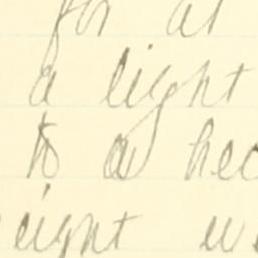 for at
a light
to a hea
eight we